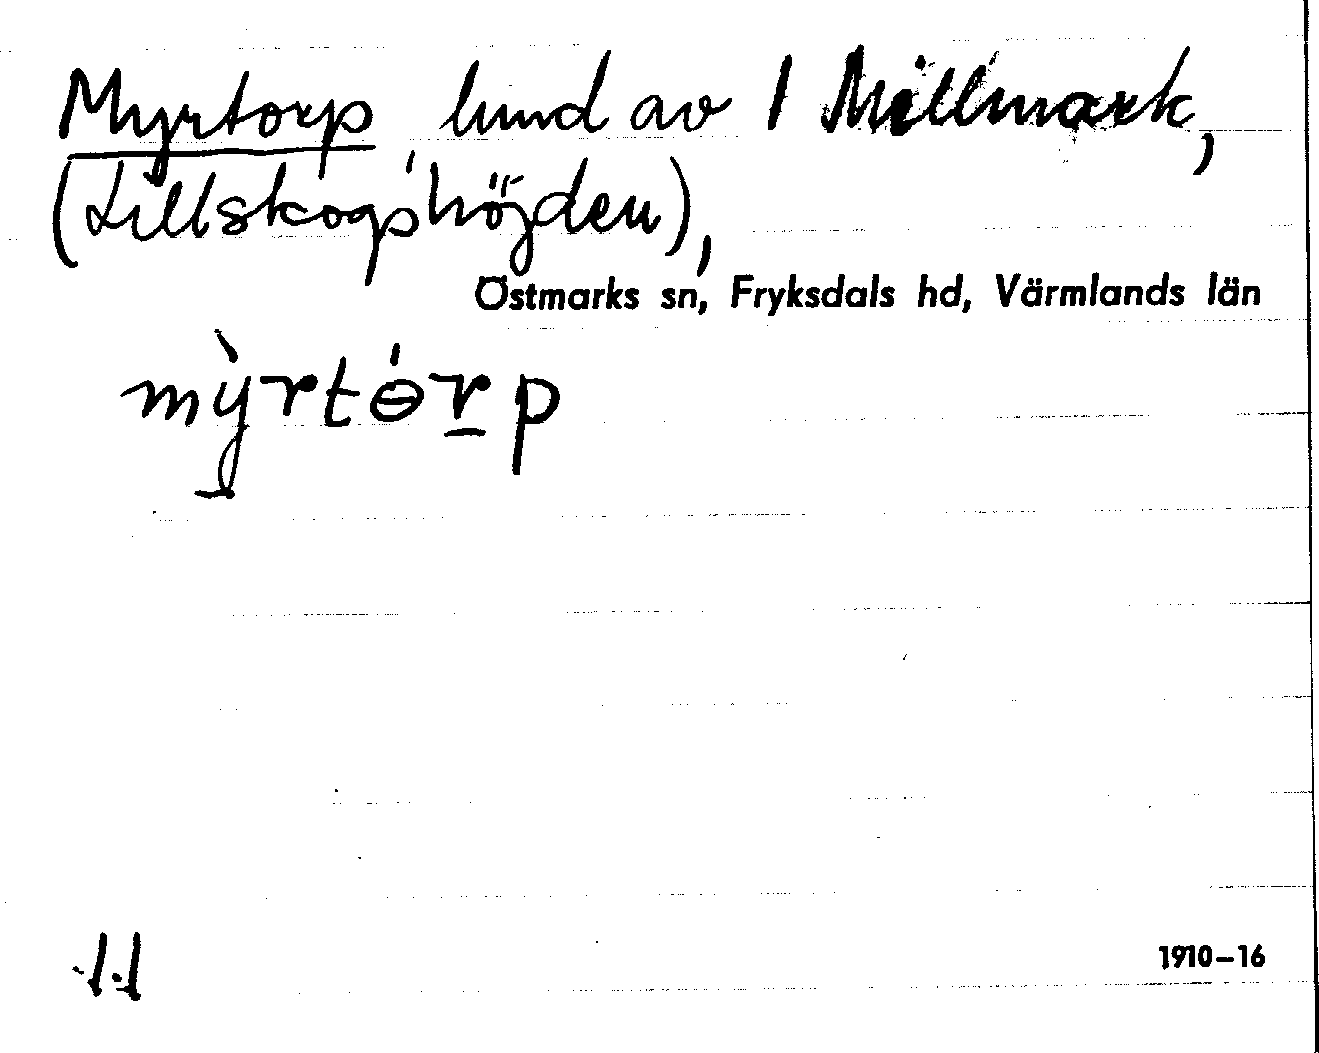 Myrtorp, lund av 1 Millmark,
(Lillskogshöjden),
Östmarks sn, Fryksdals hd, Värmlands län
mỳrtɵ́r̲p
1910–16